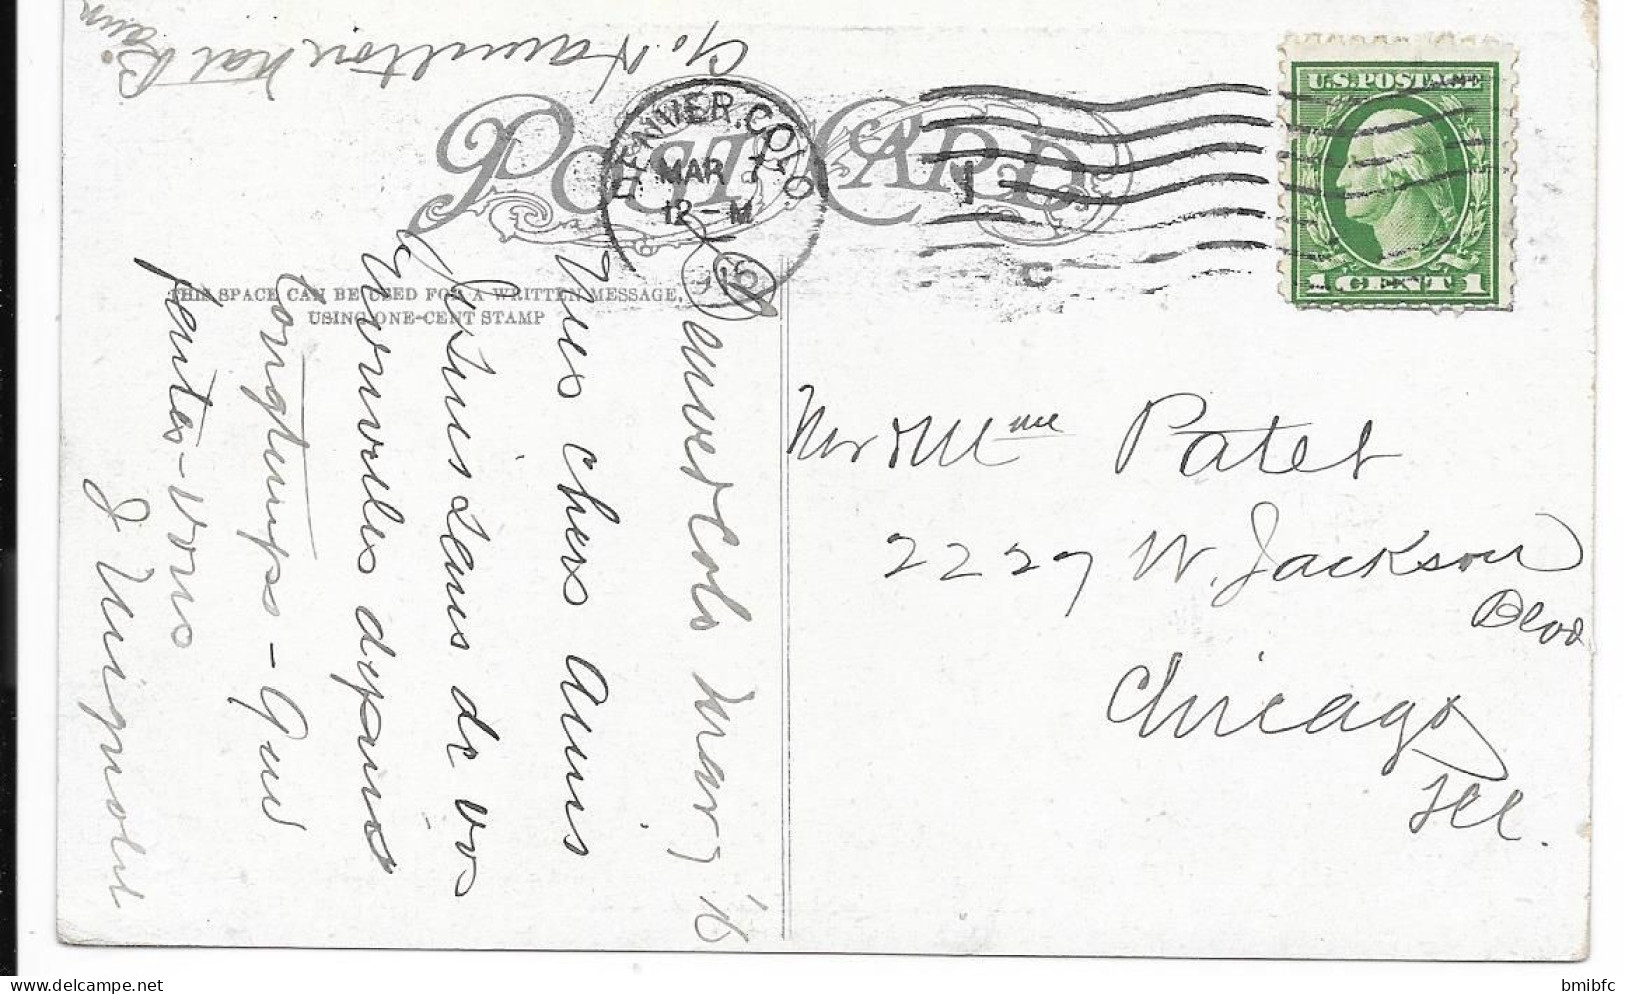 POST CARD
DENVER. COLO.
MAR 7
12 - M
1916
U.S. POSTAGE
1 CENT 1
THIS SPACE CAN BE USED FOR A WRITTEN MESSAGE,
USING ONE-CENT STAMP
Denver Colo Mar 7 '16
Mes chers Amis
Je suis sans de vos
Nouvelles depuis
Longtemps - Que
faites-vous
J Mignolet
Mr & Mme Patet
2227 W. Jackson
Blvd
Chicago
Ill.
bmibfc